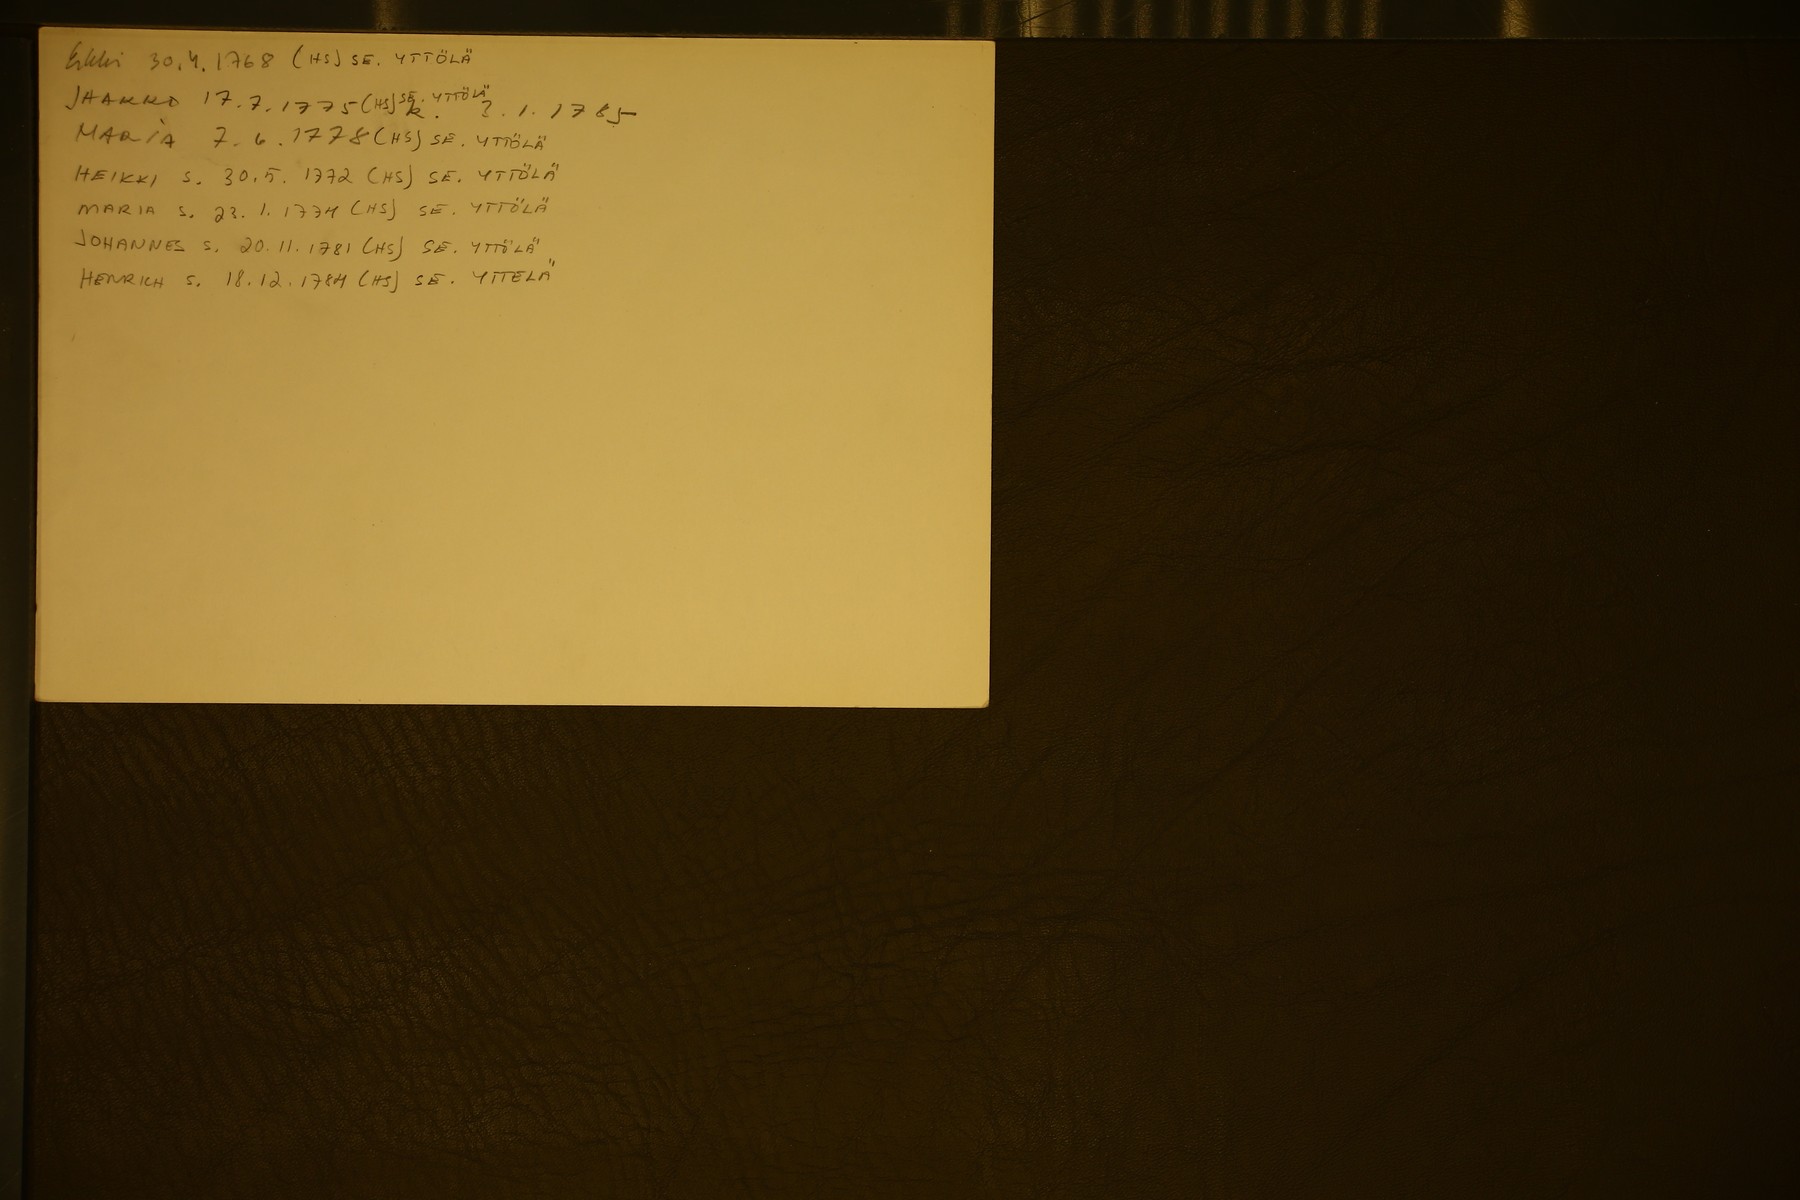 Erkki 30.4.1768 (HS) SE. YTTÖLÄ
JAAKKO 17.7.1775 (HS) SE. YTTÖLÄ k. 3.1.1785
MARIA 7.6.1778 (HS) SE. YTTÖLÄ
HEIKKI S. 30.5.1772 (HS) SE. YTTÖLÄ
MARIA S. 23.1.1774 (HS) SE. YTTÖLÄ
JOHANNES S. 20.11.1781 (HS) SE. YTTÖLÄ
HENRICH S. 18.12.1784 (HS) SE. YTTELÄ